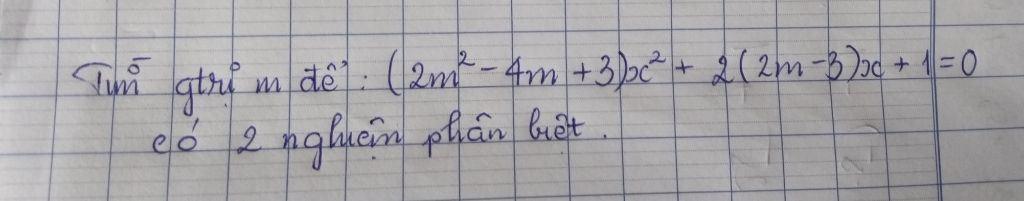 Tìm gtrị m để : (2m² - 4m + 3)x² + 2(2m-3)x + 1 = 0
có 2 nghiệm phân biệt.